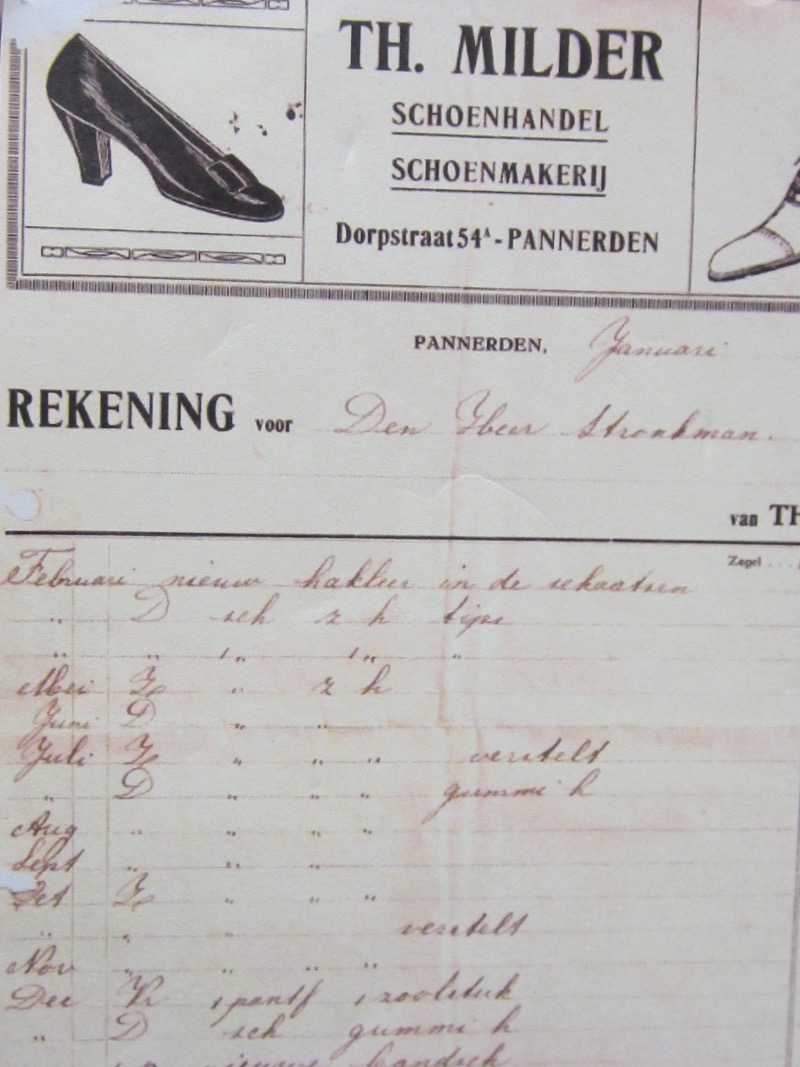 TH. MILDER
SCHOENHANDEL
SCHOENMAKERIJ
Dorpstraat 54A - PANNERDEN
PANNERDEN, Januari
REKENING voor Den Heer Stronkman.
van TH
Zegel
Februari nieuw hakleer in de schaatsen
" D sch z h tips
" " 1 " 1 " "
Mei H " z h
Juni D " "
Juli H " " " verstelt
" D " " " gummi h
Aug " " " "
Sept " " "
Oct H " " "
" " " verstelt
Nov " " " "
Dec Kr 1 pantf 1 zoolstuk
" D sch gummi h
nieuwe handsch